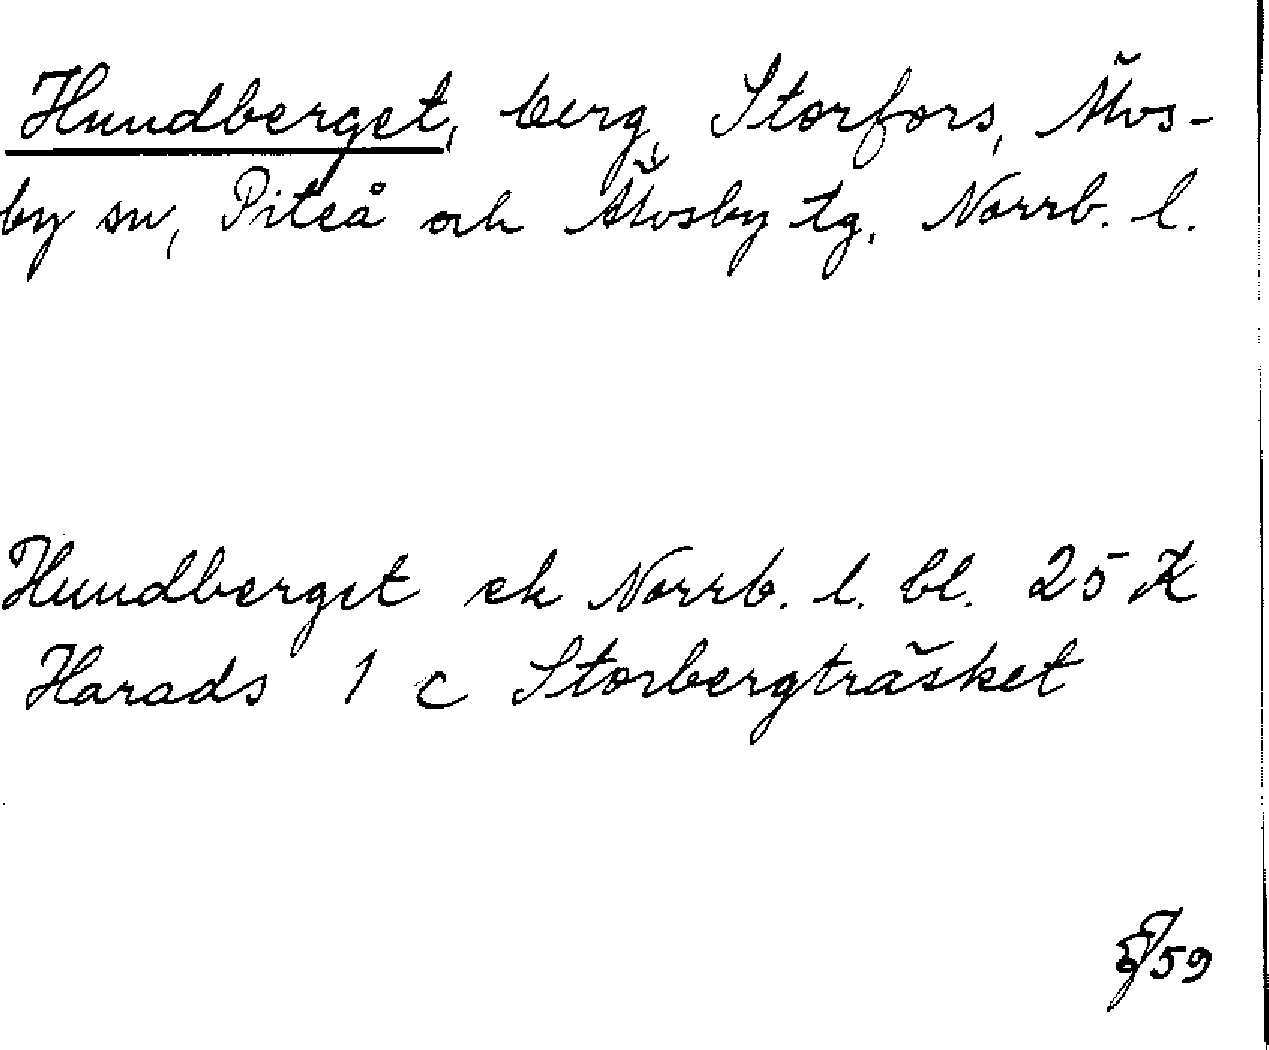 Hundberget, berg, Storfors, Älvs-
by sn, Piteå och Älvsby tg, Norrb. l.
Hundberget ek Norrb. l. bl. 25 K
Harads 1 c Storbergträsket
59